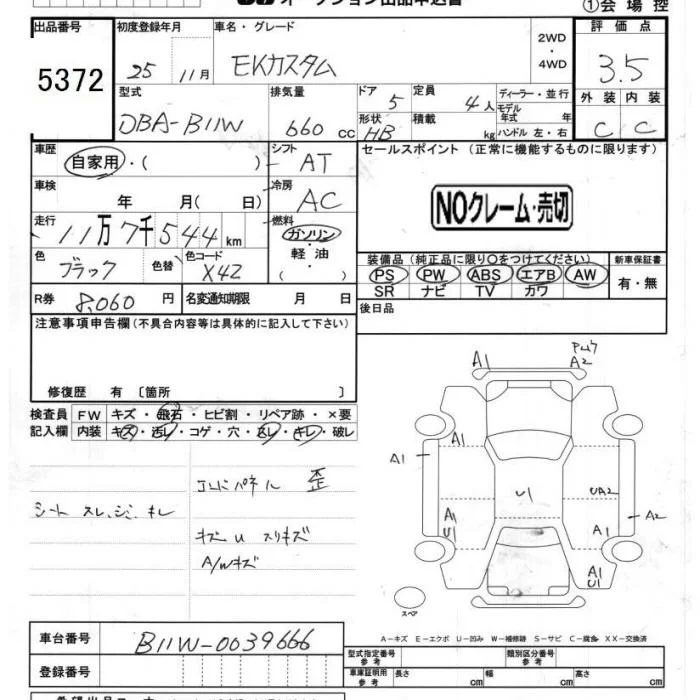 オークション出品申込書 ①会場控
出品番号 初度登録年月 車名・グレード 2WD・4WD 評価点
5372 25 11月 EKカスタム 3.5
型式 排気量 ドア 定員 ディーラー・並行 外装 内装
DBA-B11W 660 cc 5 4人 モデル年式 年 C C
形状 HB 積載 kg ハンドル 左・右
車歴 自家用・( ) シフト AT セールスポイント (正常に機能するものに限ります)
車検 年 月( 日) 冷房 AC
NOクレーム・売切
走行 11万7千544km 燃料 ガソリン・軽油・( )
色 ブラック 色替 色コード X42
装備品 (純正品に限り○をつけてください) 新車保証書
PS PW ABS エアB AW 有・無
SR ナビ TV カワ
R券 8,060円 名変通知期限 月 日 後日品
注意事項申告欄(不具合内容等は具体的に記入して下さい)
修復歴 有 〔箇所 〕
検査員 FW キズ・飛石・ヒビ割・リペア跡・×要
記入欄 内装 キズ・汚レ・コゲ・穴・スレ・キレ・破レ
コアパネル 歪
シート スレ、シミ、キレ
キズ U スリキズ
A/Wキズ
A1 A2
A1 A1
U1 UA2
A1 U1 A1 A2
A1 U1
スペア
A-キズ E-エクボ U-凹み W-補修跡 S-サビ C-腐食 XX-交換済
車台番号 B11W-0039666
型式指定番号 参考 類別区分番号 参考
登録番号
車庫証明用 参考 長さ cm 幅 cm 高さ cm